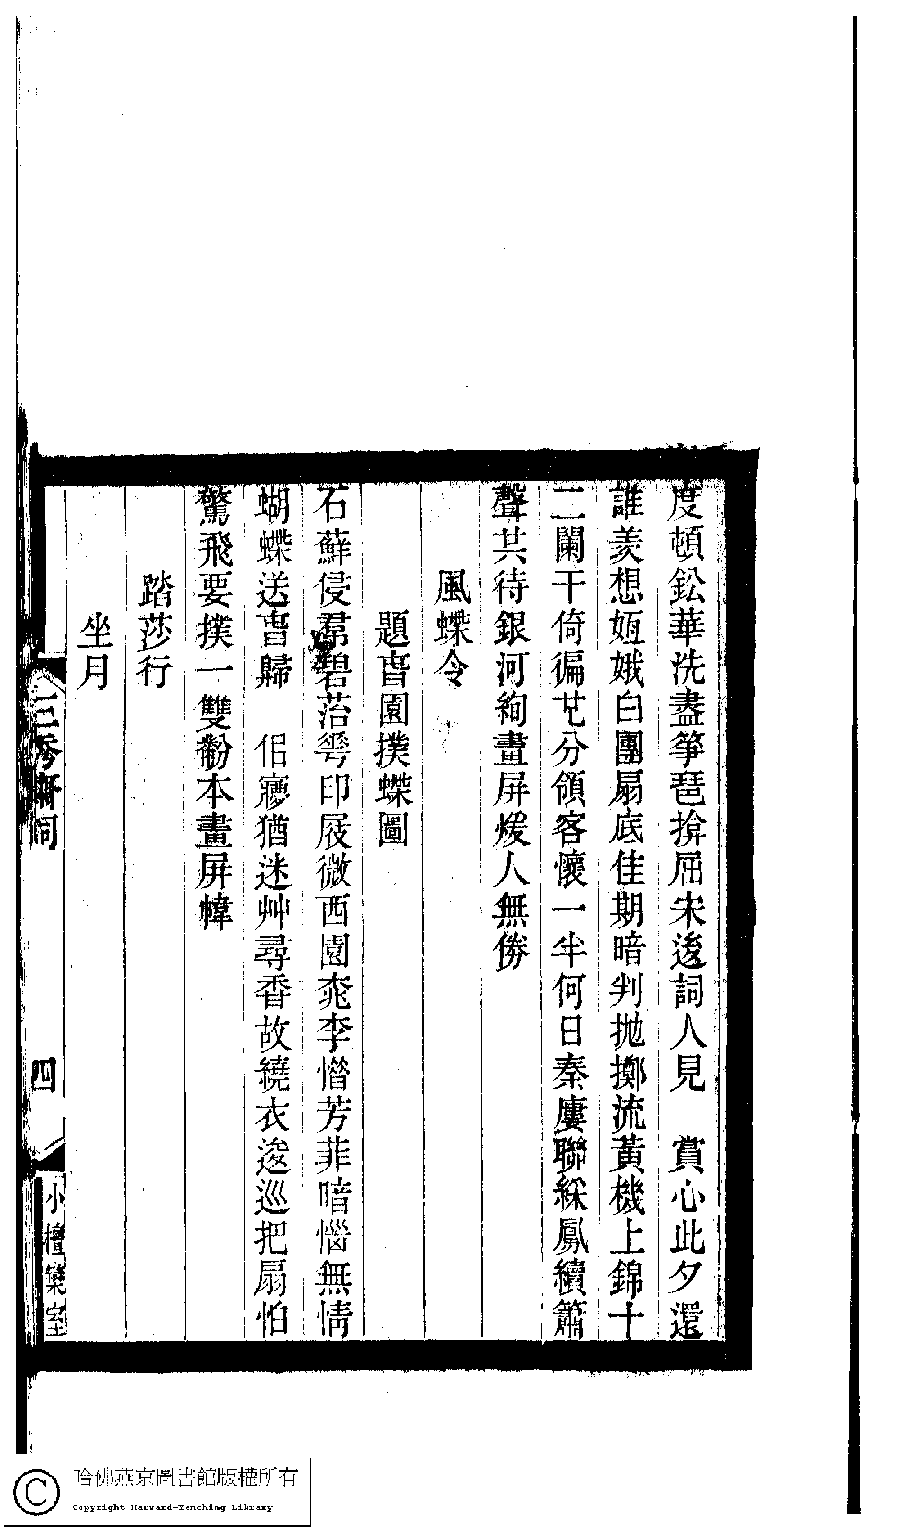 度頓鈆華洗盡箏琶揜屈宋後詞人見　賞心此夕還
誰羨想姮娥白團扇底佳期暗判拋擲流黃機上錦十
二闌干倚徧分領客懷一半何日秦廔聯綵鳳續簫
聲共待銀河絢畫屏煖人無傍
風蝶令
題旾園撲蝶圖
石蘚侵帬碧菭雩印屐微西園桃李憯芳菲暗惱無情
蝴蝶送旾歸　佀㝱猶迷艸尋香故繞衣逡巡把扇怕
驚飛要撲一雙粉本畫屏幃
踏莎行
坐月
三秀齋詞
四
小檀欒室
哈佛燕京圖書館版權所有
Copyright Harvard-Yenching Library